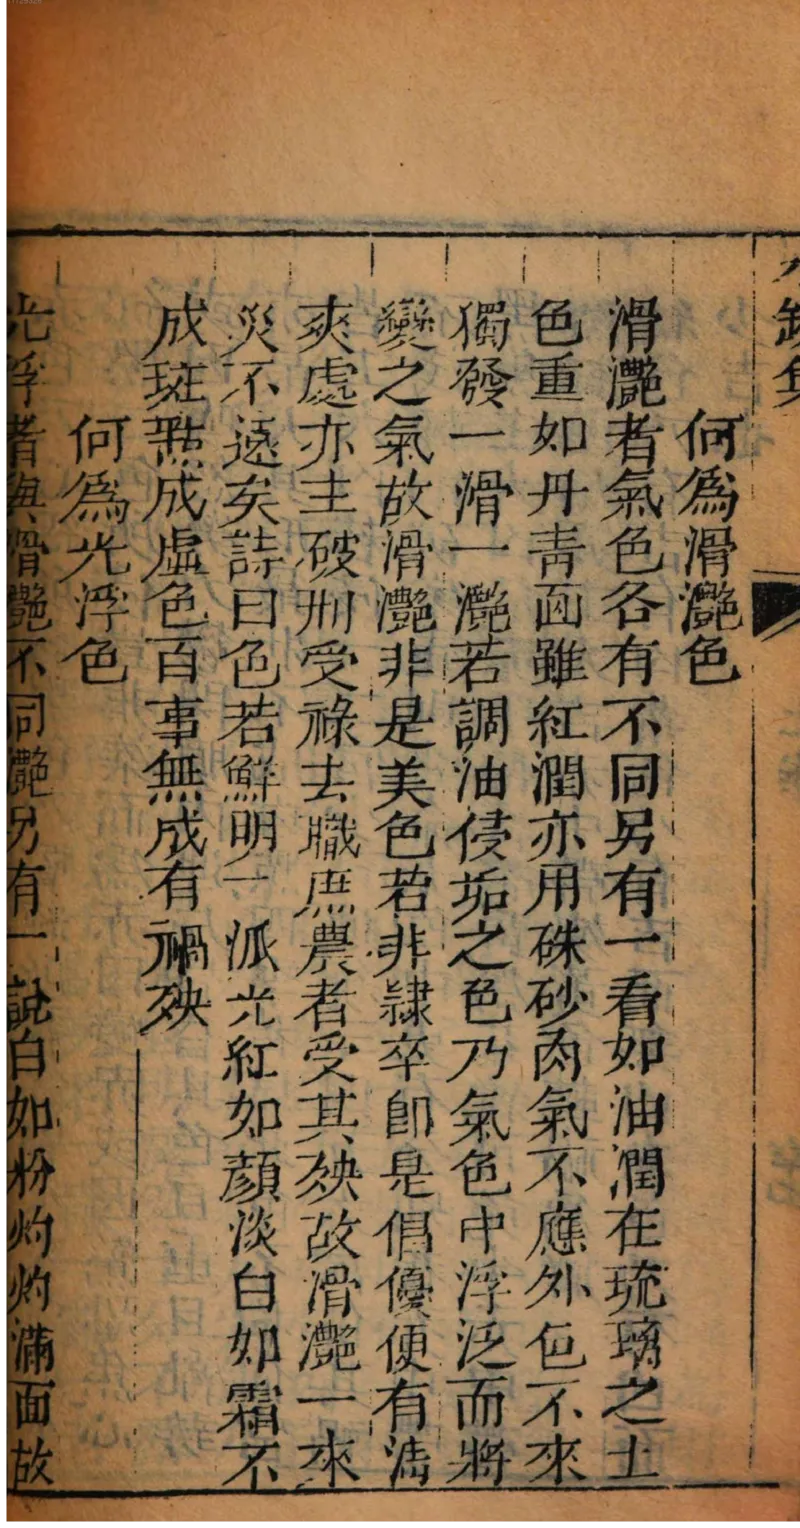 水鏡集
何爲滑灧色
滑灧者氣色各有不同另有一看如油潤在琉璃之土
色重如丹青面雖紅潤亦用硃砂肉氣不應外色不來
獨發一滑一灧若調油侵垢之色乃氣色中浮泛而將
變之氣故滑灧非是美色若非隷卒卽是倡優便有清
爽處亦主破刑受祿去職庶農者受其殃故滑灧一來
災不遠矣詩曰色若鮮明一派光紅如顏淡白如霜不
成斑㸃成虛色百事無成有禍殃
何爲光浮色
光浮者與滑灧不同灧另有一說白如粉灼灼滿面故